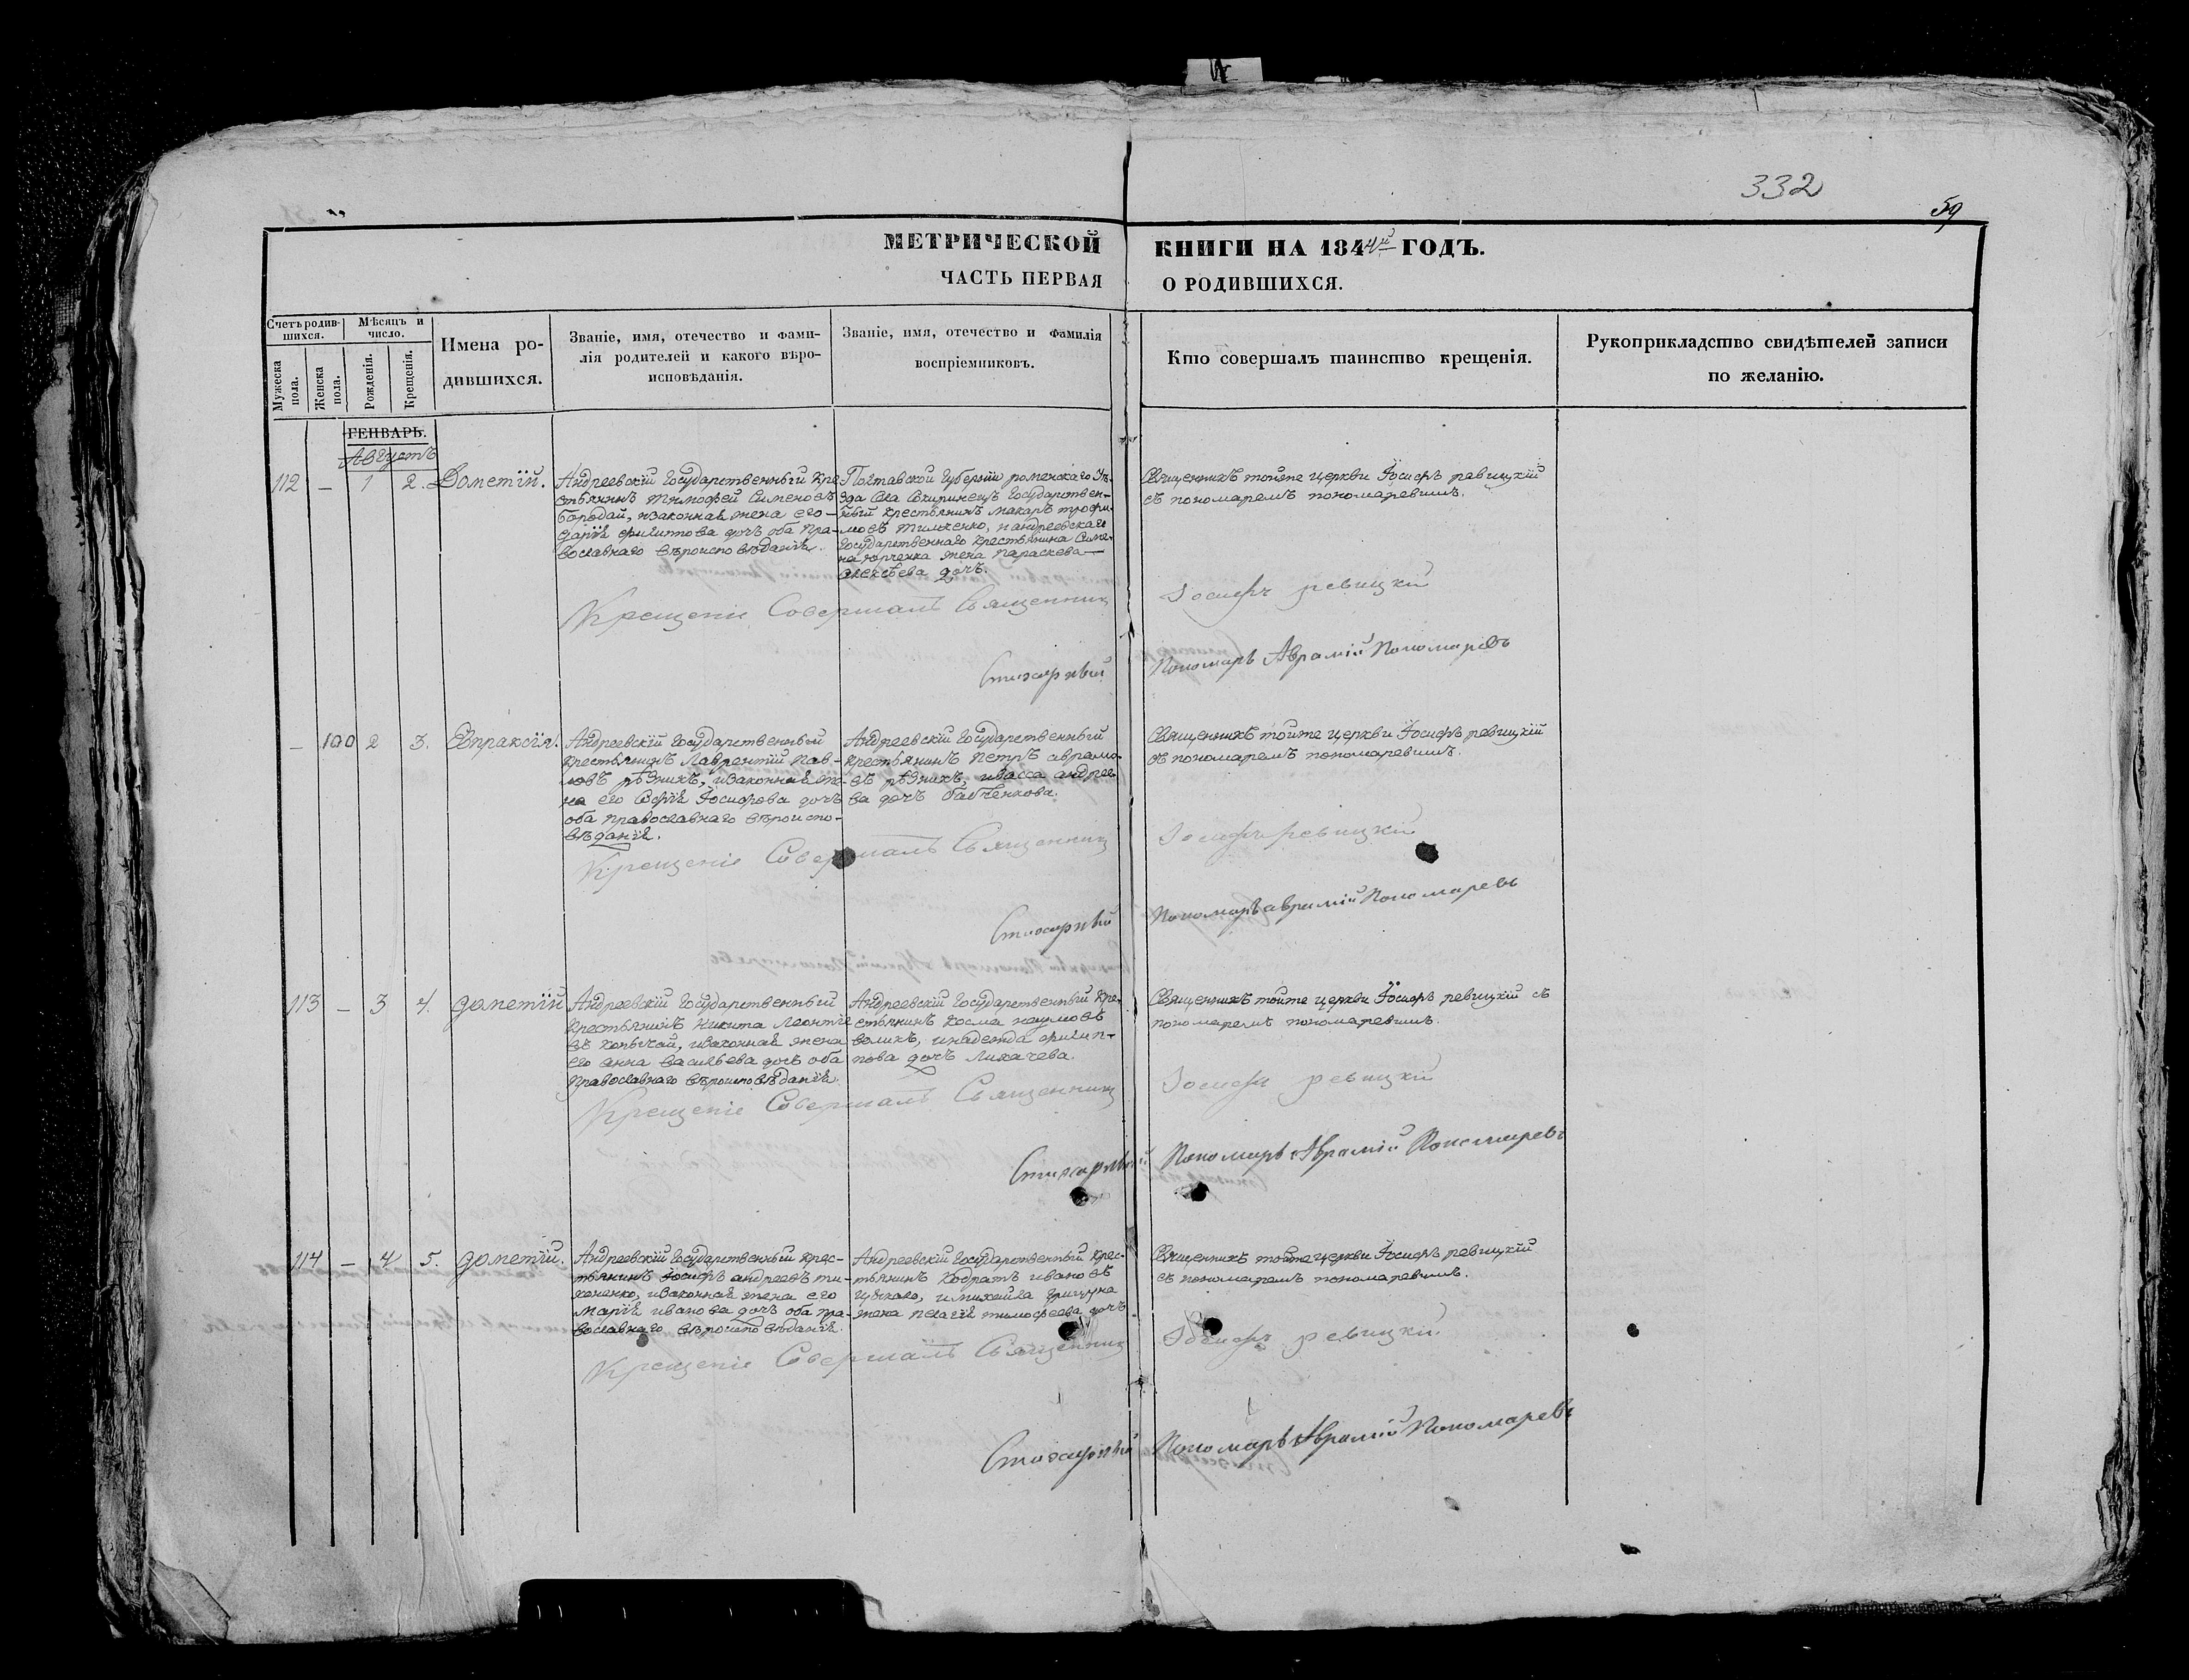 332
59
МЕТРИЧЕСКОЙ КНИГИ НА 1844й ГОДЪ.
ЧАСТЬ ПЕРВАЯ О РОДИВШИХСЯ.
Счетъ родившихся.
Мужеска пола.
Женска пола.
Мѣсяцъ и число.
Рожденія.
Крещенія.
Имена родившихся.
Званіе, имя, отечество и фамилія родителей и какого вѣроисповѣданія.
Званіе, имя, отечество и фамилія воспріемниковъ.
Кто совершалъ таинство крещенія.
Рукоприкладство свидѣтелей записи по желанію.
ГЕНВАРЬ.
Августъ
112 — 1 2. Дометій.
Андреевскій Государственный Кре-
стьянинъ Тимофей Сименовъ
бородай, изаконная жена его
дарія филиппова дочь оба Пра-
вославнаго вѣроисповѣданія.
Полтавской Губерніи роменскаго Уѣ-
зда Села Государствен-
ный крестьянинъ макаръ трофи-
мовъ и андреевскаго
Государственнаго крестьянина Симе-
на юрченка жена параскева
алексѣева дочь.
Священникъ тойже церкви Іосифъ ревицкій
съ пономаремъ пономаревымъ.
Крещеніе Совершалъ Священникъ Іосифъ ревицкій
Стихарный Пономарь Аврамій Пономаревъ
— 100 2 3. Евпраксія.
Андреевскій Государственный
крестьянинъ Лаврентій пав-
ловъ рѣзникъ, изаконная же-
на его Софія Іосифова дочь
оба православнаго вѣроиспо-
вѣданія.
Андреевскій Государственный
крестьянинъ петръ аврамо-
въ рѣзникъ, ивасса андрее-
ва дочь бабченкова.
Священникъ тойже церкви Іосифъ ревицкій
съ пономаремъ пономаревымъ.
Крещеніе Совершалъ Священникъ Іосифъ ревицкій
Стихарный Пономарь аврамій Пономаревъ
113 — 3 4. дометій
Андреевскій Государственный
крестьянинъ никита Леонтіе
въ копычай, изаконная жена
его анна васильева дочь оба
православнаго вѣроисповѣданія.
Андреевскій Государственный Кре-
стьянинъ косма наумовъ
великъ, инадежда филип-
пова дочь лихачева.
Священникъ тойже церкви Іосифъ ревицкій съ
пономаремъ пономаревымъ.
Крещеніе Совершалъ Священникъ Іосифъ ревицкій
Стихарный Пономарь Аврамій Пономаревъ
114 — 4 5. дометій.
Андреевскій Государственный крес-
тьянинъ Іосифъ андреевъ ти-
хоненко, изаконная жена его
марія иванова дочь оба пра-
вославнаго вѣроисповѣданія.
Андреевскій Государственный крес-
тьянинъ кодратъ ивановъ
имихайла грицуна
жена пелагія тимофеева дочь
Священникъ тойже церкви Іосифъ ревицкій
съ пономаремъ пономаревымъ.
Крещеніе Совершалъ Священникъ Іосифъ ревицкій
Стихарный Пономарь Аврамій Пономаревъ